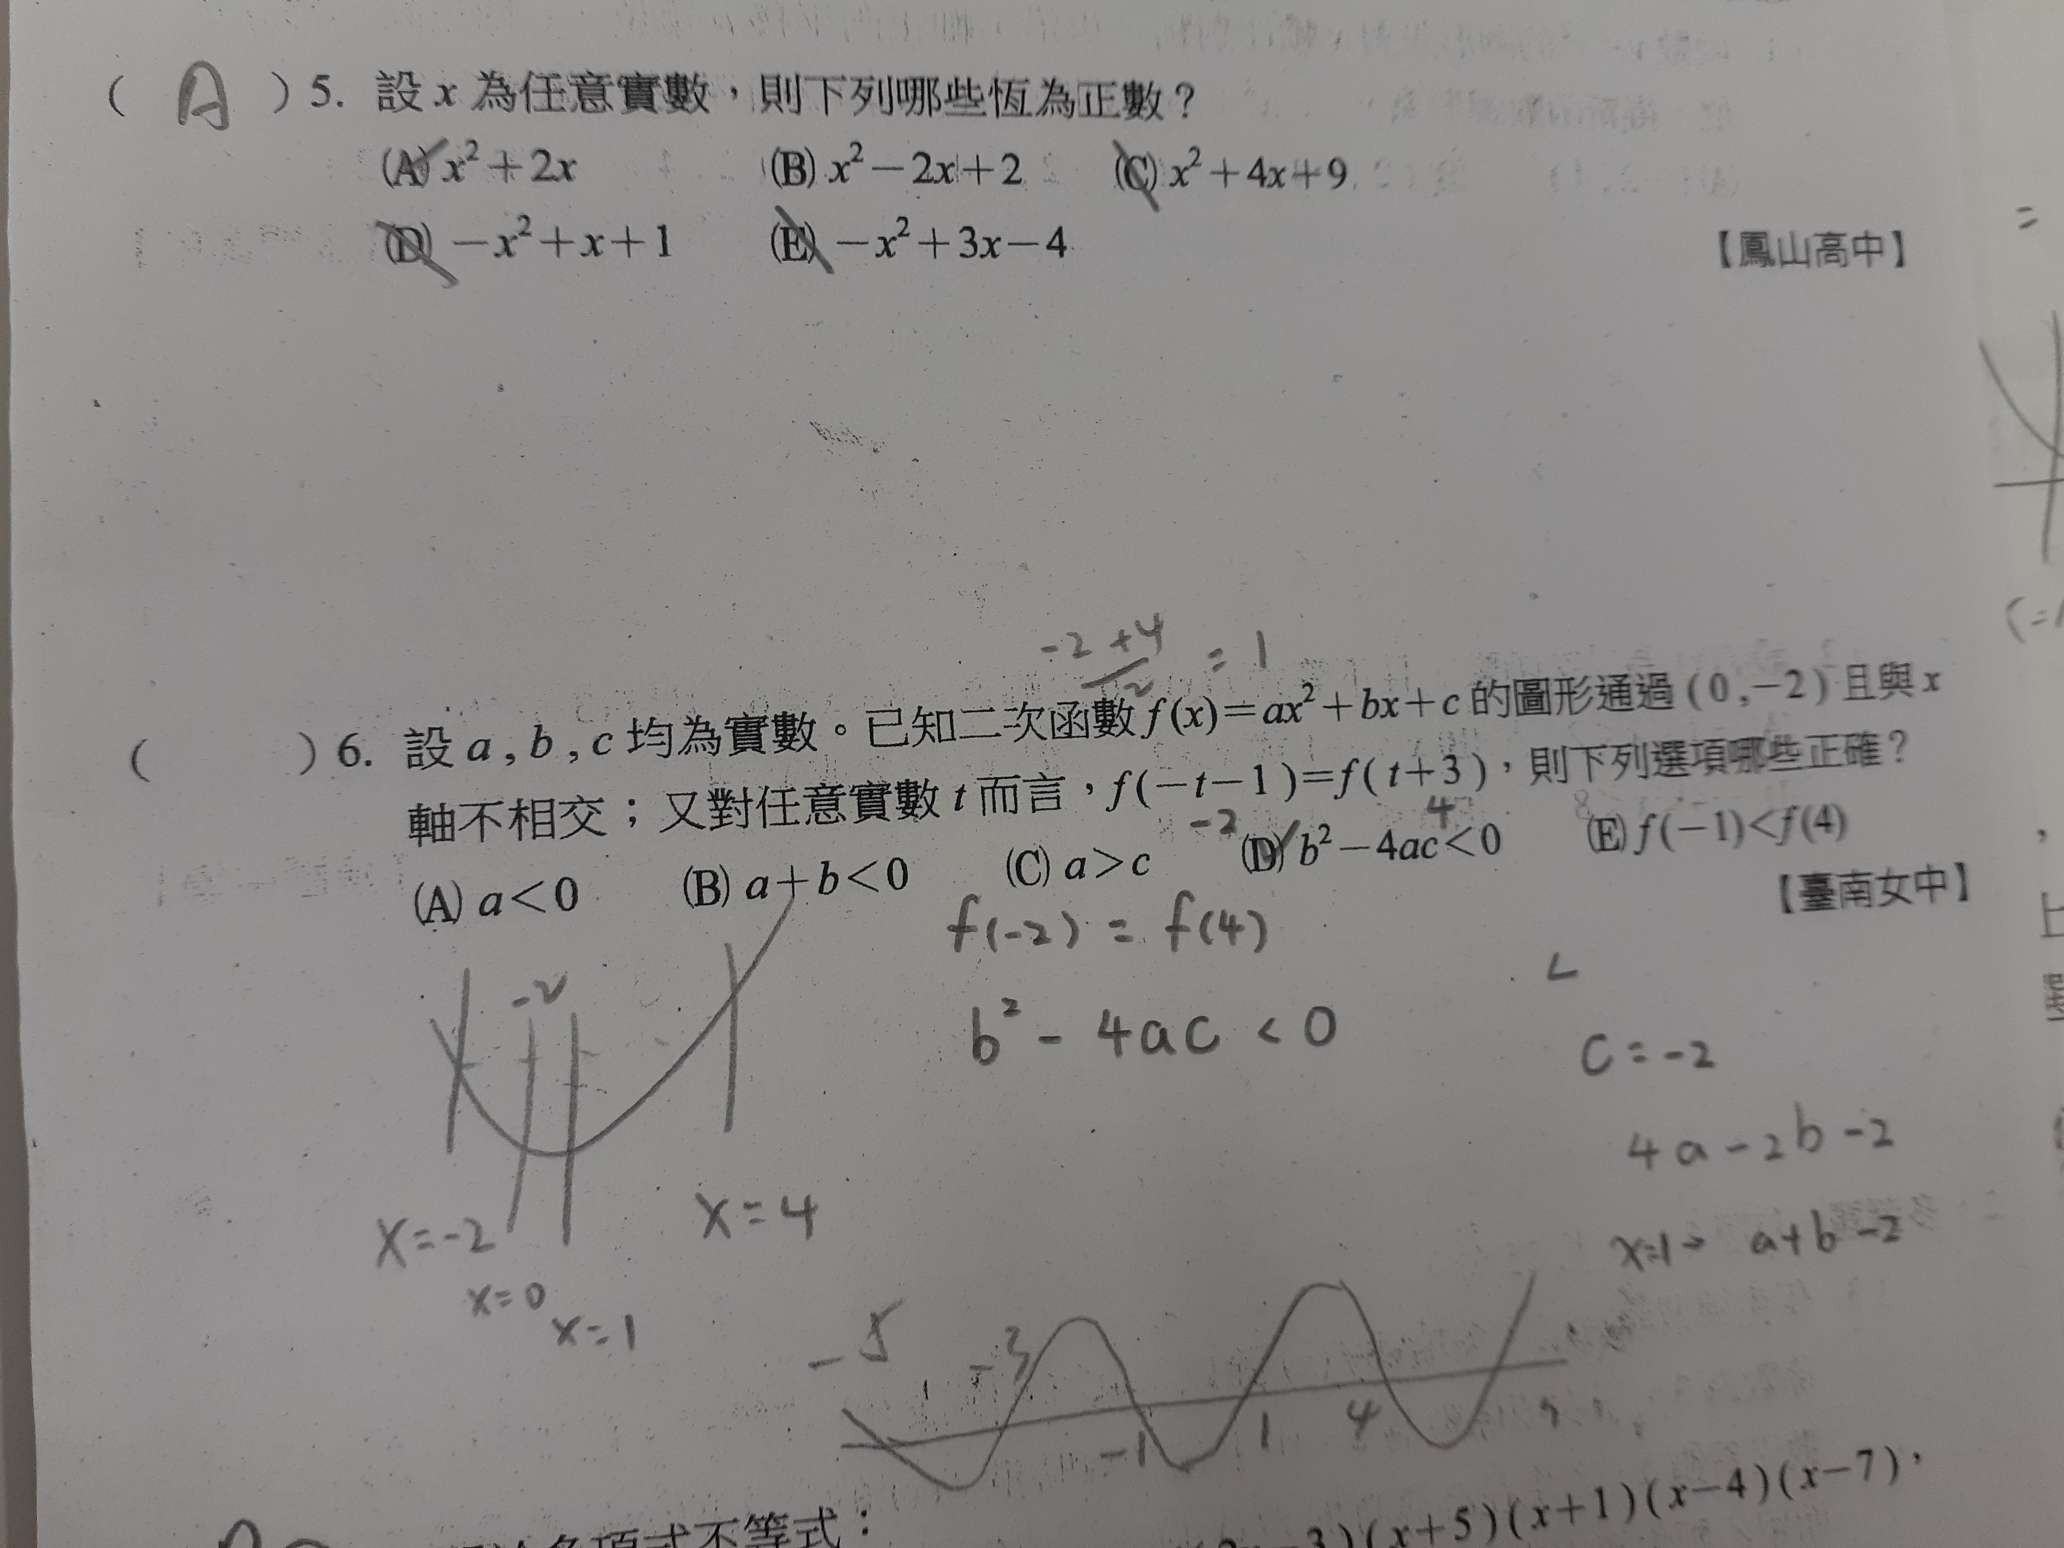 ( A ) 5. 設 x 為任意實數，則下列哪些恆為正數？
(A) x²+2x (B) x²−2x+2 (C) x²+4x+9
(D) −x²+x+1 (E) −x²+3x−4
【鳳山高中】
-2+4 / 2 = 1
( ) 6. 設 a , b , c 均為實數。已知二次函數 f(x)=ax²+bx+c 的圖形通過 (0,−2) 且與 x
軸不相交；又對任意實數 t 而言，f(−t−1)=f(t+3)，則下列選項哪些正確？
-2 4
(A) a<0 (B) a+b<0 (C) a>c (D) b²−4ac<0 (E) f(−1)<f(4)
【臺南女中】
f(-2) = f(4)
-2
b² - 4ac < 0
C = -2
4a - 2b - 2
x=-2 x=4
x=1→ a+b-2
x=0
x=1
-5 -3
-1 1 4
多項式不等式：
3)(x+5)(x+1)(x−4)(x−7)，